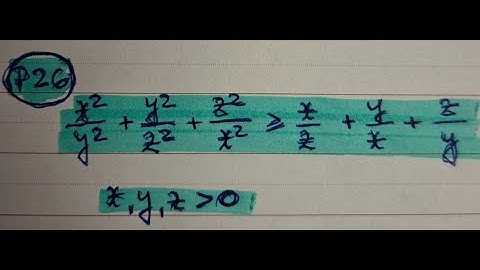 P26
x²/y² + y²/z² + z²/x² ≥ x/z + y/x + z/y
x, y, z > 0